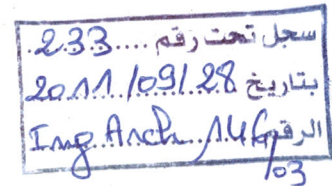 سجل تحت رقم ....233.
بتاريخ 2011/09/28
الرقم Ing.Arch.146/03